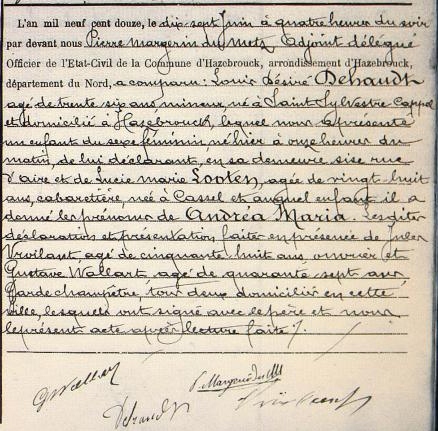 L'an mil neuf cent douze, le dix-sept Juin à quatre heures du soir
par devant nous Pierre Margerin du Metz adjoint délégué
Officier de l'Etat-Civil de la Commune d'Hazebrouck, arrondissement d'Hazebrouck,
département du Nord, a comparu: Louis Désiré Dehaudt
agé de trente six ans, mineur, né à Saint Sylvestre Cappel
et domicilié à Hazebrouck, lequel nous a présenté
un enfant du sexe féminin, né hier à onze heures du
matin, de lui déclarant, en sa demeure sise rue
d'aire et de Lucie Marie Looten, agée de vingt-huit
ans, cabaretière, née à Cassel et auquel enfant il a
donné les prénoms de Andréa Maria. Les dites
déclaration et présentation faites en présence de Jules
agé de cinquante huit ans, ouvrier et
Gustave Wallart agé de quarante sept ans
Garde champêtre, tous deux domiciliés en cette
ville, lesquels ont signé avec le père et nous
le présent acte après lecture faite /.
GWallart
P Margerin du M
Dehaudt